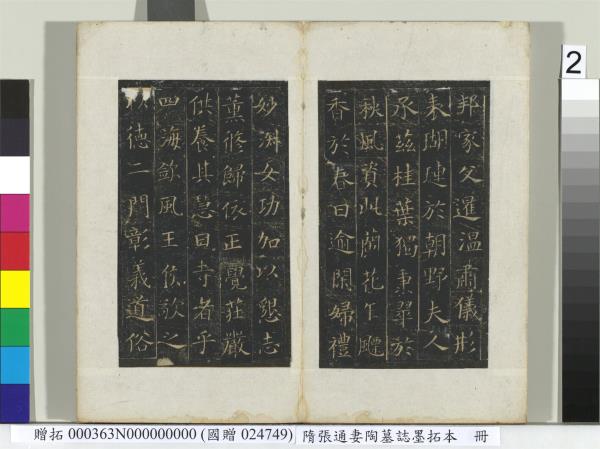 邦家父暹温肅儀形
表瑚璉於朝野夫人
承茲桂葉獨秉翠於
秋風資此蘭花乍飃
香於春日逾閑婦禮
妙洞女功加以懇志
薰修歸依正覺莊嚴
供養其慧日寺者乎
四海欽風王侯欽之
以德二門彰義道俗
2
贈拓 000363N000000000 (國贈 024749) 隋張通妻陶墓誌墨拓本 冊